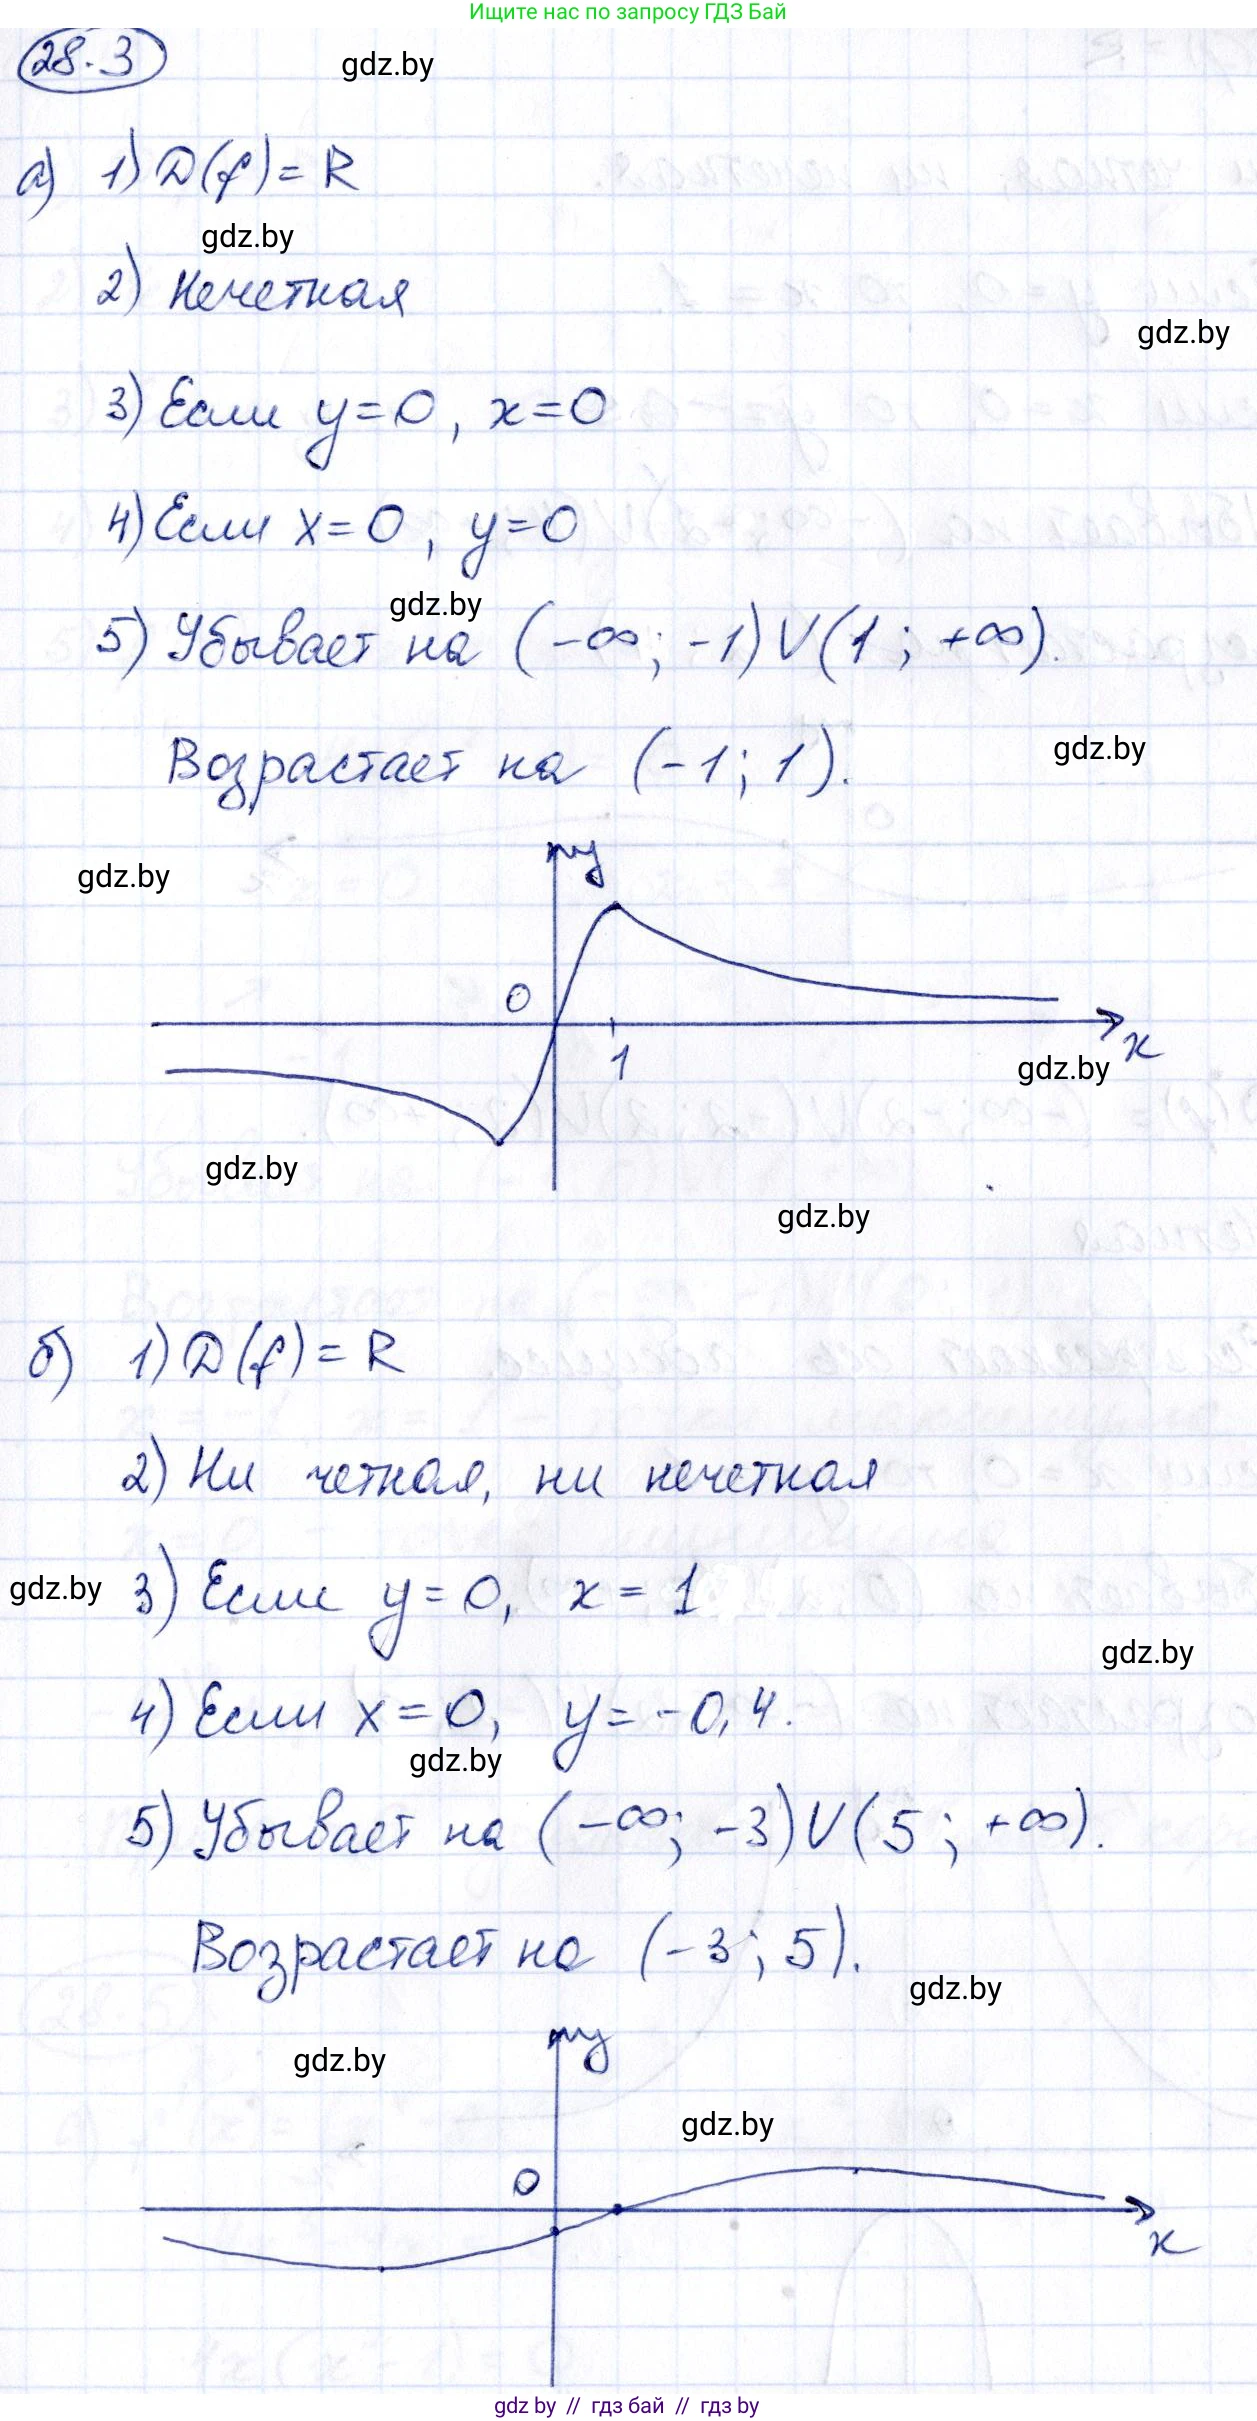 Ищите нас по запросу ГДЗ Бай
28.3
gdz.by
а) 1) D(f) = R
gdz.by
2) Нечетная
gdz.by
3) Если y=0, x=0
4) Если x=0, y=0
gdz.by
5) Убывает на (-∞; -1) V (1; +∞).
Возрастает на (-1; 1).
gdz.by
gdz.by
y
0
1
x
gdz.by
gdz.by
gdz.by
б) 1) D(f) = R
2) Ни четная, ни нечетная
gdz.by
3) Если y=0, x=1
gdz.by
4) Если x=0, y=-0,4.
gdz.by
5) Убывает на (-∞; -3) V (5; +∞).
Возрастает на (-3; 5).
gdz.by
y
gdz.by
gdz.by
0
x
gdz by // гдз бай // гдз by